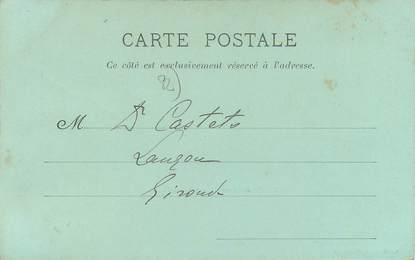 CARTE POSTALE
Ce côté est exclusivement réservé à l'adresse.
M Dr Castets
Langon
Gironde